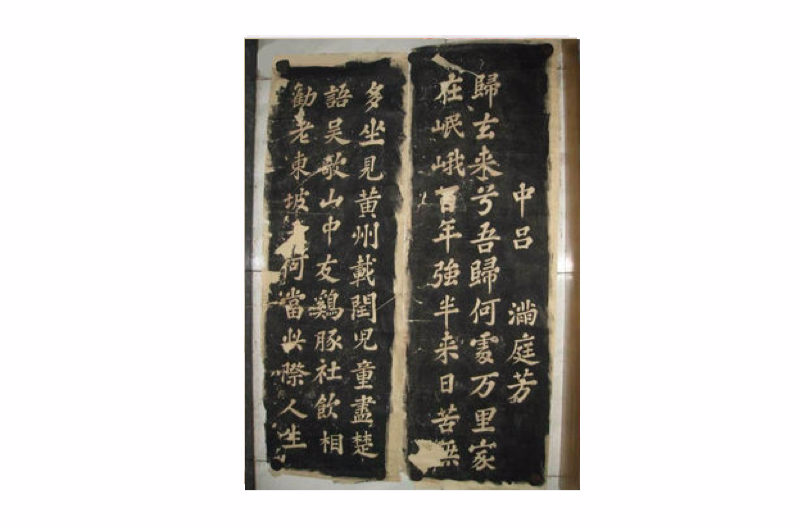 中吕 滿庭芳
歸去来兮吾歸何處万里家
在岷峨百年強半来日苦無
多坐見黄州載閏児童盡楚
語吴歌山中友鷄豚社飲相
勸老東坡何當此際人生